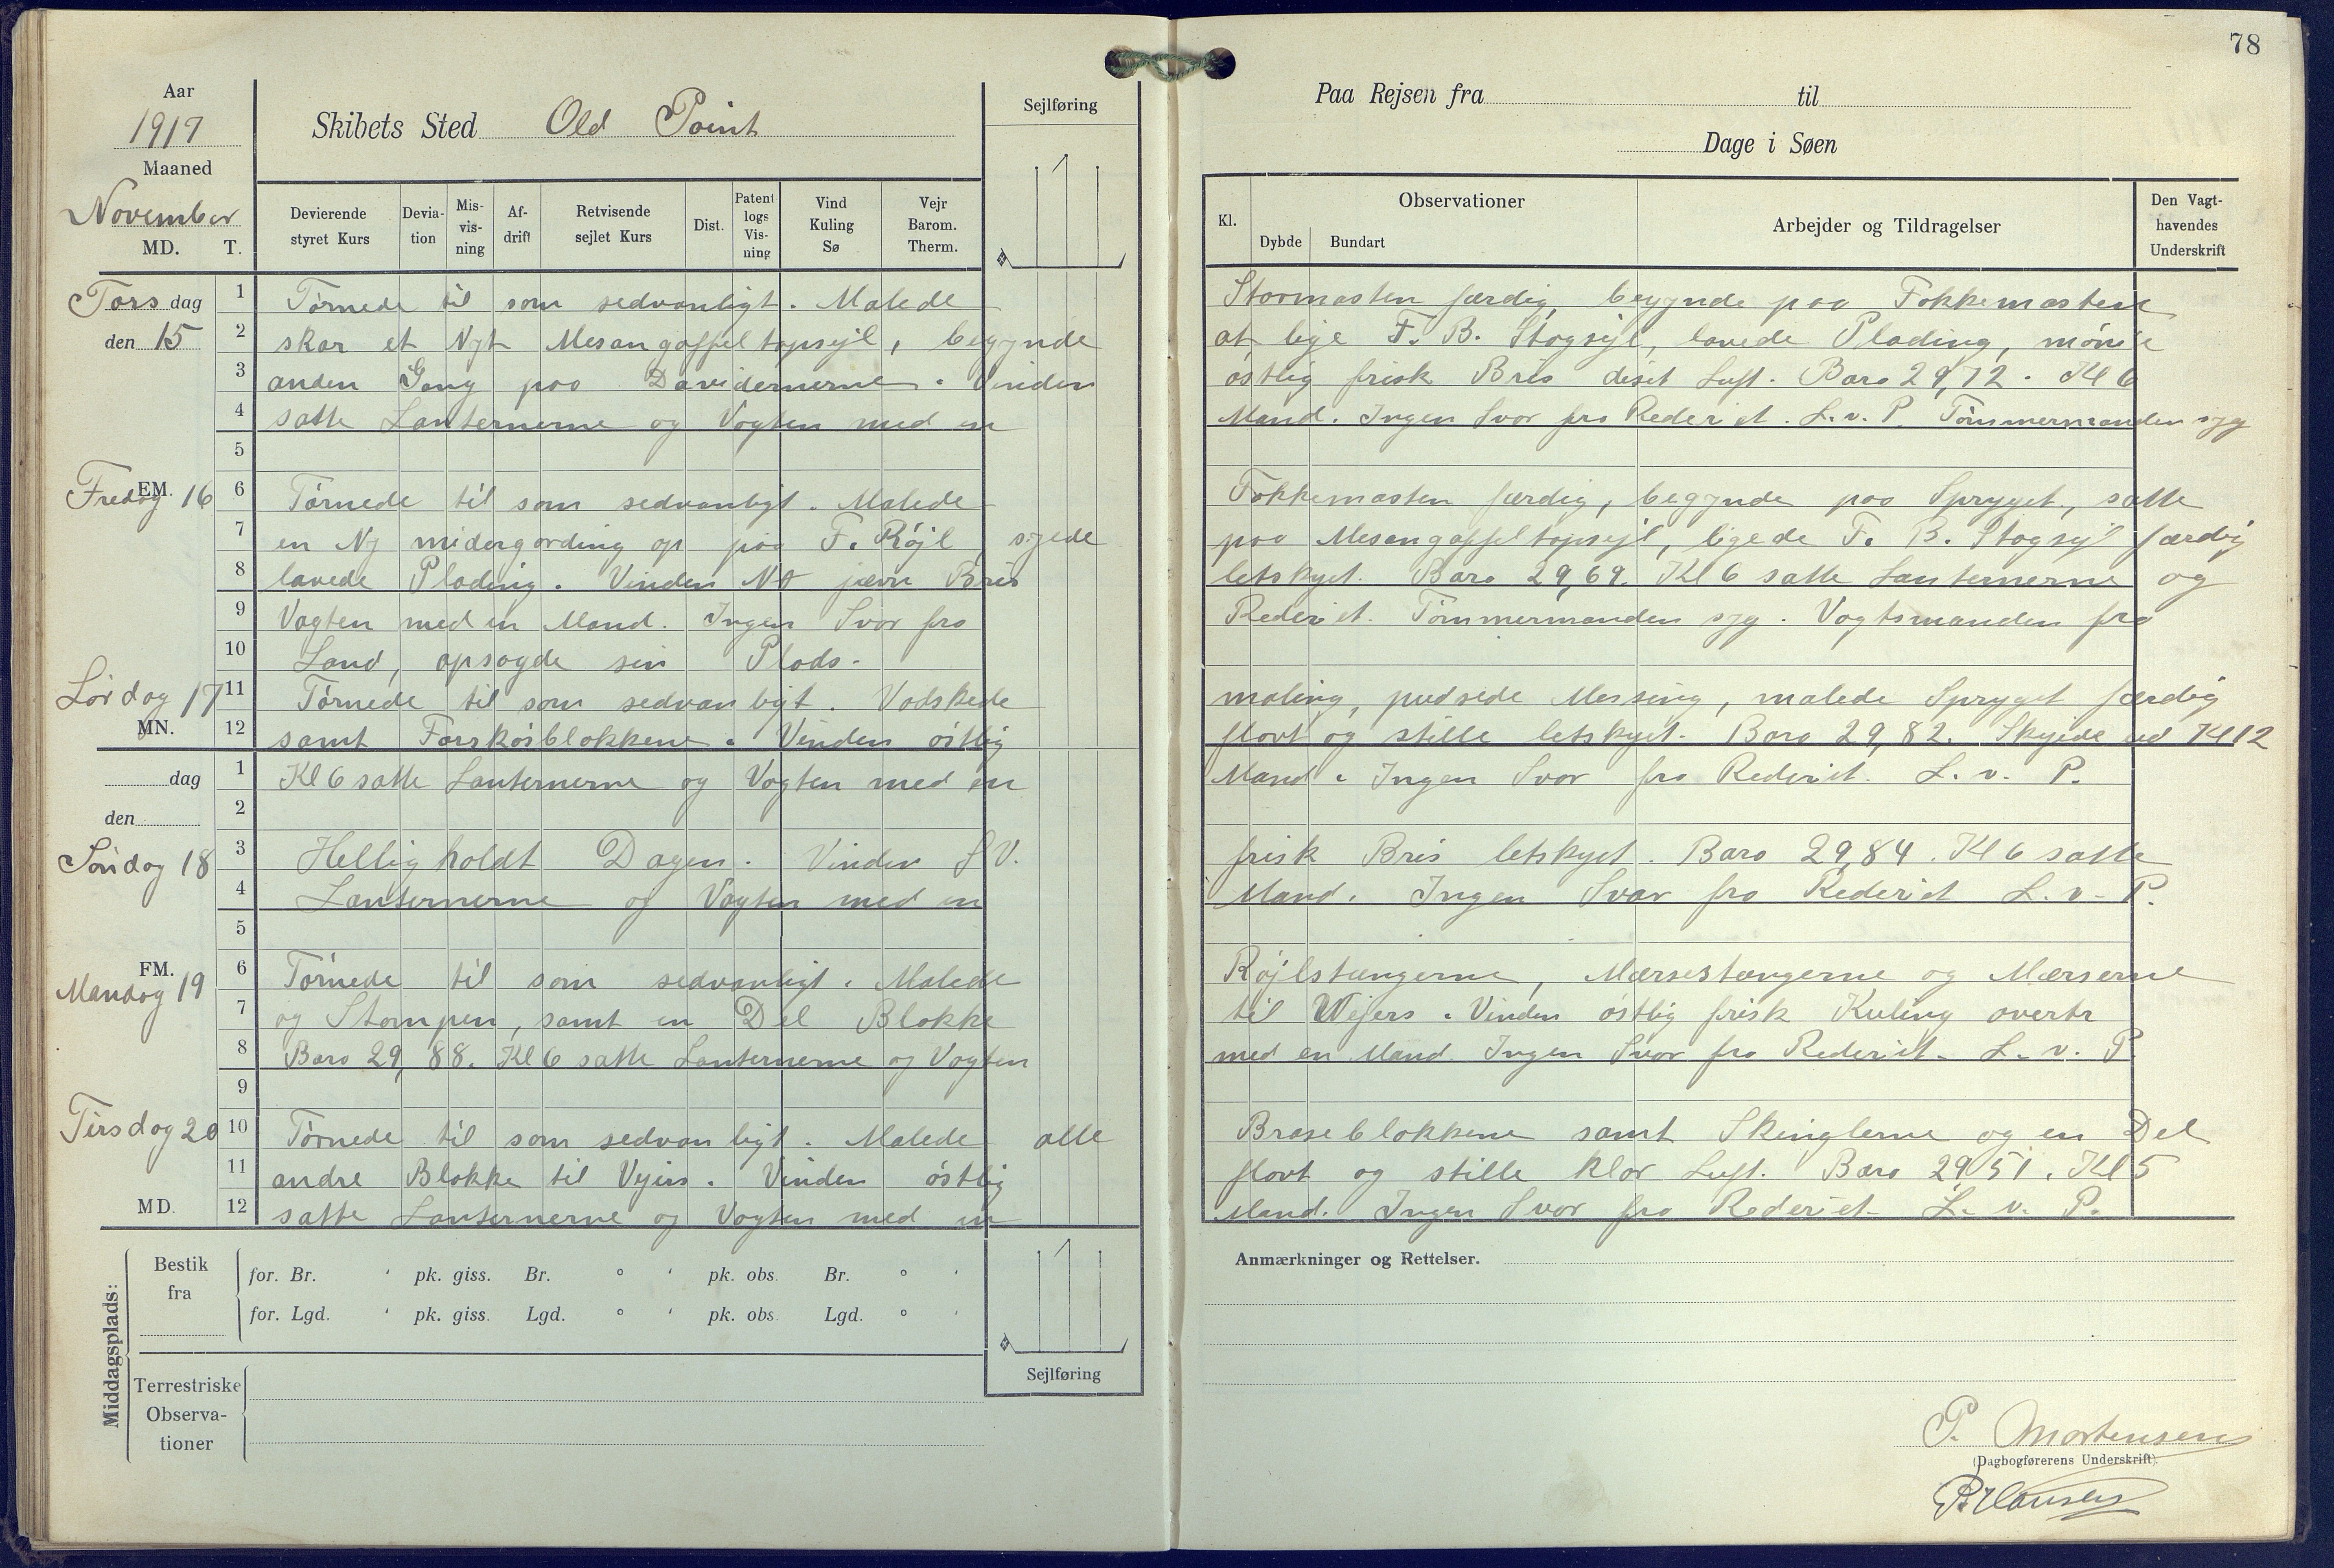 78
Aar
1917
Maaned
November
MD. T.
Skibets Sted Old Point
Sejlføring
Devierende styret Kurs
Deviation
Misvisning
Afdrift
Retvisende sejlet Kurs
Dist.
Patent logs Visning
Vind Kuling Sø
Vejr Barom. Therm.
Paa Rejsen fra til
Dage i Søen
Kl.
Observationer
Dybde Bundart
Arbejder og Tildragelser
Den Vagthavendes Underskrift
Torsdag
den 15
1 Tørnede til som sedvanligt. Malede Stormasten færdig, begynde paa Fokkemasten
2 skar et Nyt Mesangaffeltopsejl, begynde at lige F. B. Stagsejl, lavede Plading, mønie
3 anden Gang paa Davidernerne. Vinden østlig frisk Bris diset Luft. Baro 29,72. Kl 6
4 satte Lanternerne og Vagten med en Mand. Ingen Svar fra Rederiet. L. v. P. Tømmermanden syg
5
EM.
Fredag 16
6 Tørnede til som sedvanligt. Malede Fokkemasten færdig, begynde paa Spryget, satte
7 en Ny midergording op paa F. Røjl, syede paa Mesangaffeltopsejl, ligede F. B. Stagsejl færdig
8 lavede Plading. Vinden NO jævn Bris letskyet. Baro 29,69. Kl 6 satte Lanternerne og
9 Vagten med en Mand. Ingen Svar fra Rederiet. Tømmermanden syg. Vagtsmanden fra
10 Land, opsagde sin Plads.
Lørdag 17
11 Tørnede til som sedvanligt. Vadskede maling, pudsede Messing, malede Spryget færdig
MN.
12 samt Forskøsblokkene. Vinden østlig flovt og stille letskyet. Baro 29,82. Skyede ved Kl 12
dag
1 Kl 6 satte Lanternerne og Vagten med en Mand. Ingen Svar fra Rederiet. L. v. P.
den
2
Søndag 18
3 Helligholdt Dagen. Vinden SV. frisk Bris letskyet. Baro 29,84. Kl 6 satte
4 Lanternerne og Vagten med en Mand. Ingen Svar fra Rederiet L. v. P.
5
FM.
Mandag 19
6 Tørnede til som sedvanligt. Malede Røjlstængerne, Mærsestængerne og Mærserne
7 og Stampen, samt en Del Blokke til Wejers. Vinden østlig frisk Kuling overtr
8 Baro 29,88. Kl 6 satte Lanternerne og Vagten med en Mand Ingen Svar fra Rederiet. L. v. P.
9
Tirsdag 20
10 Tørnede til som sedvanligt. Malede alle Braseblokkene samt Skinglerne og en Del
11 andre Blokke til Vejers. Vinden østlig flovt og stille klar Luft. Baro 29,51. Kl 5
MD.
12 satte Lanternerne og Vagten med en Mand. Ingen Svar fra Rederiet L. v. P.
Middagsplads:
Bestik fra
for. Br. ' pk. giss. Br. ° ' pk. obs. Br. ° '
for. Lgd. ' pk. giss. Lgd. ° ' pk. obs. Lgd. ° '
Sejlføring
Terrestriske Observationer
Anmærkninger og Rettelser.
P. Mortensen
(Dagbogførerens Underskrift)
P. Hansen